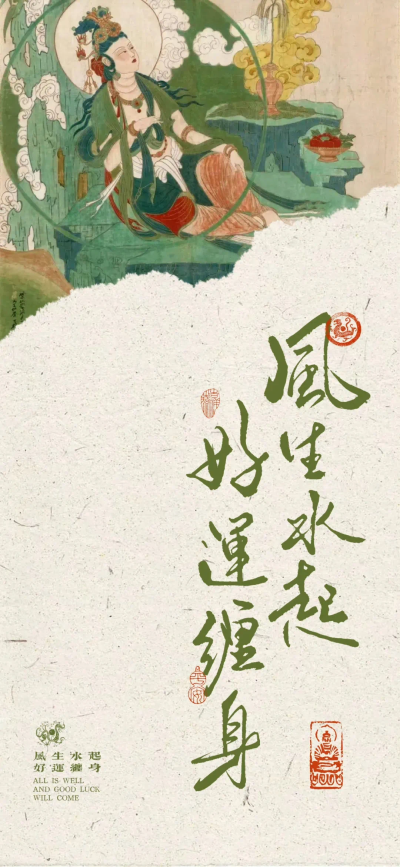 風生水起
好運纏身
風生水起
好運纏身
ALL IS WELL
AND GOOD LUCK
WILL COME